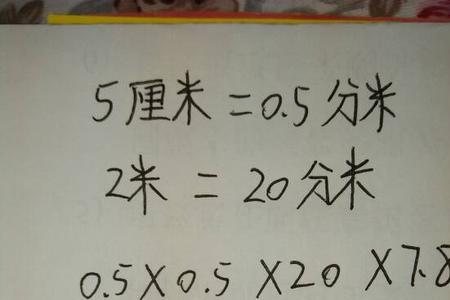 5厘米=0.5分米
2米=20分米
0.5×0.5×20×7.8